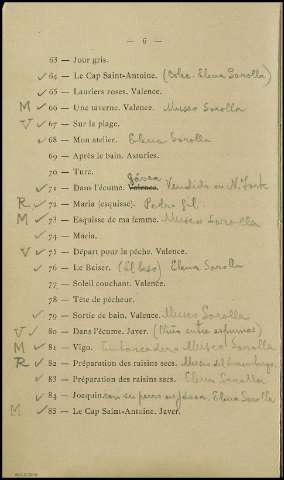 — 6 —
63 — Jour gris.
✓ 64 — Le Cap Saint-Antoine. (Colec. Elena Sorolla)
✓ 65 — Lauriers roses. Valence.
M ✓ 66 — Une taverne. Valence. Museo Sorolla
V ✓ 67 — Sur la plage.
✓ 68 — Mon atelier. Elena Sorolla
69 — Après le bain. Asturies.
70 — Turc.
✓ 71 — Dans l'écume. Valence. Jávea Vendido en N. York
R ✓ 72 — Maria (esquisse). Pedro Gil
M ✓ 73 — Esquisse de ma femme. Museo Sorolla
✓ 74 — Maria.
V ✓ 75 — Départ pour la pêche. Valence.
✓ 76 — Le Baiser. (El beso) Elena Sorolla
77 — Soleil couchant. Valence.
78 — Tête de pêcheur.
✓ 79 — Sortie de bain. Valence. Museo Sorolla
V ✓ 80 — Dans l'écume. Javer. (Niño entre espumas)
M ✓ 81 — Vigo. Embarcadero Museo Sorolla
R ✓ 82 — Préparation des raisins secs. Museo del Luxemburgo
✓ 83 — Préparation des raisins secs. Elena Sorolla
✓ 84 — Joaquin con su perro en Jávea. Elena Sorolla
M ✓ 85 — Le Cap Saint-Antoine. Javer.